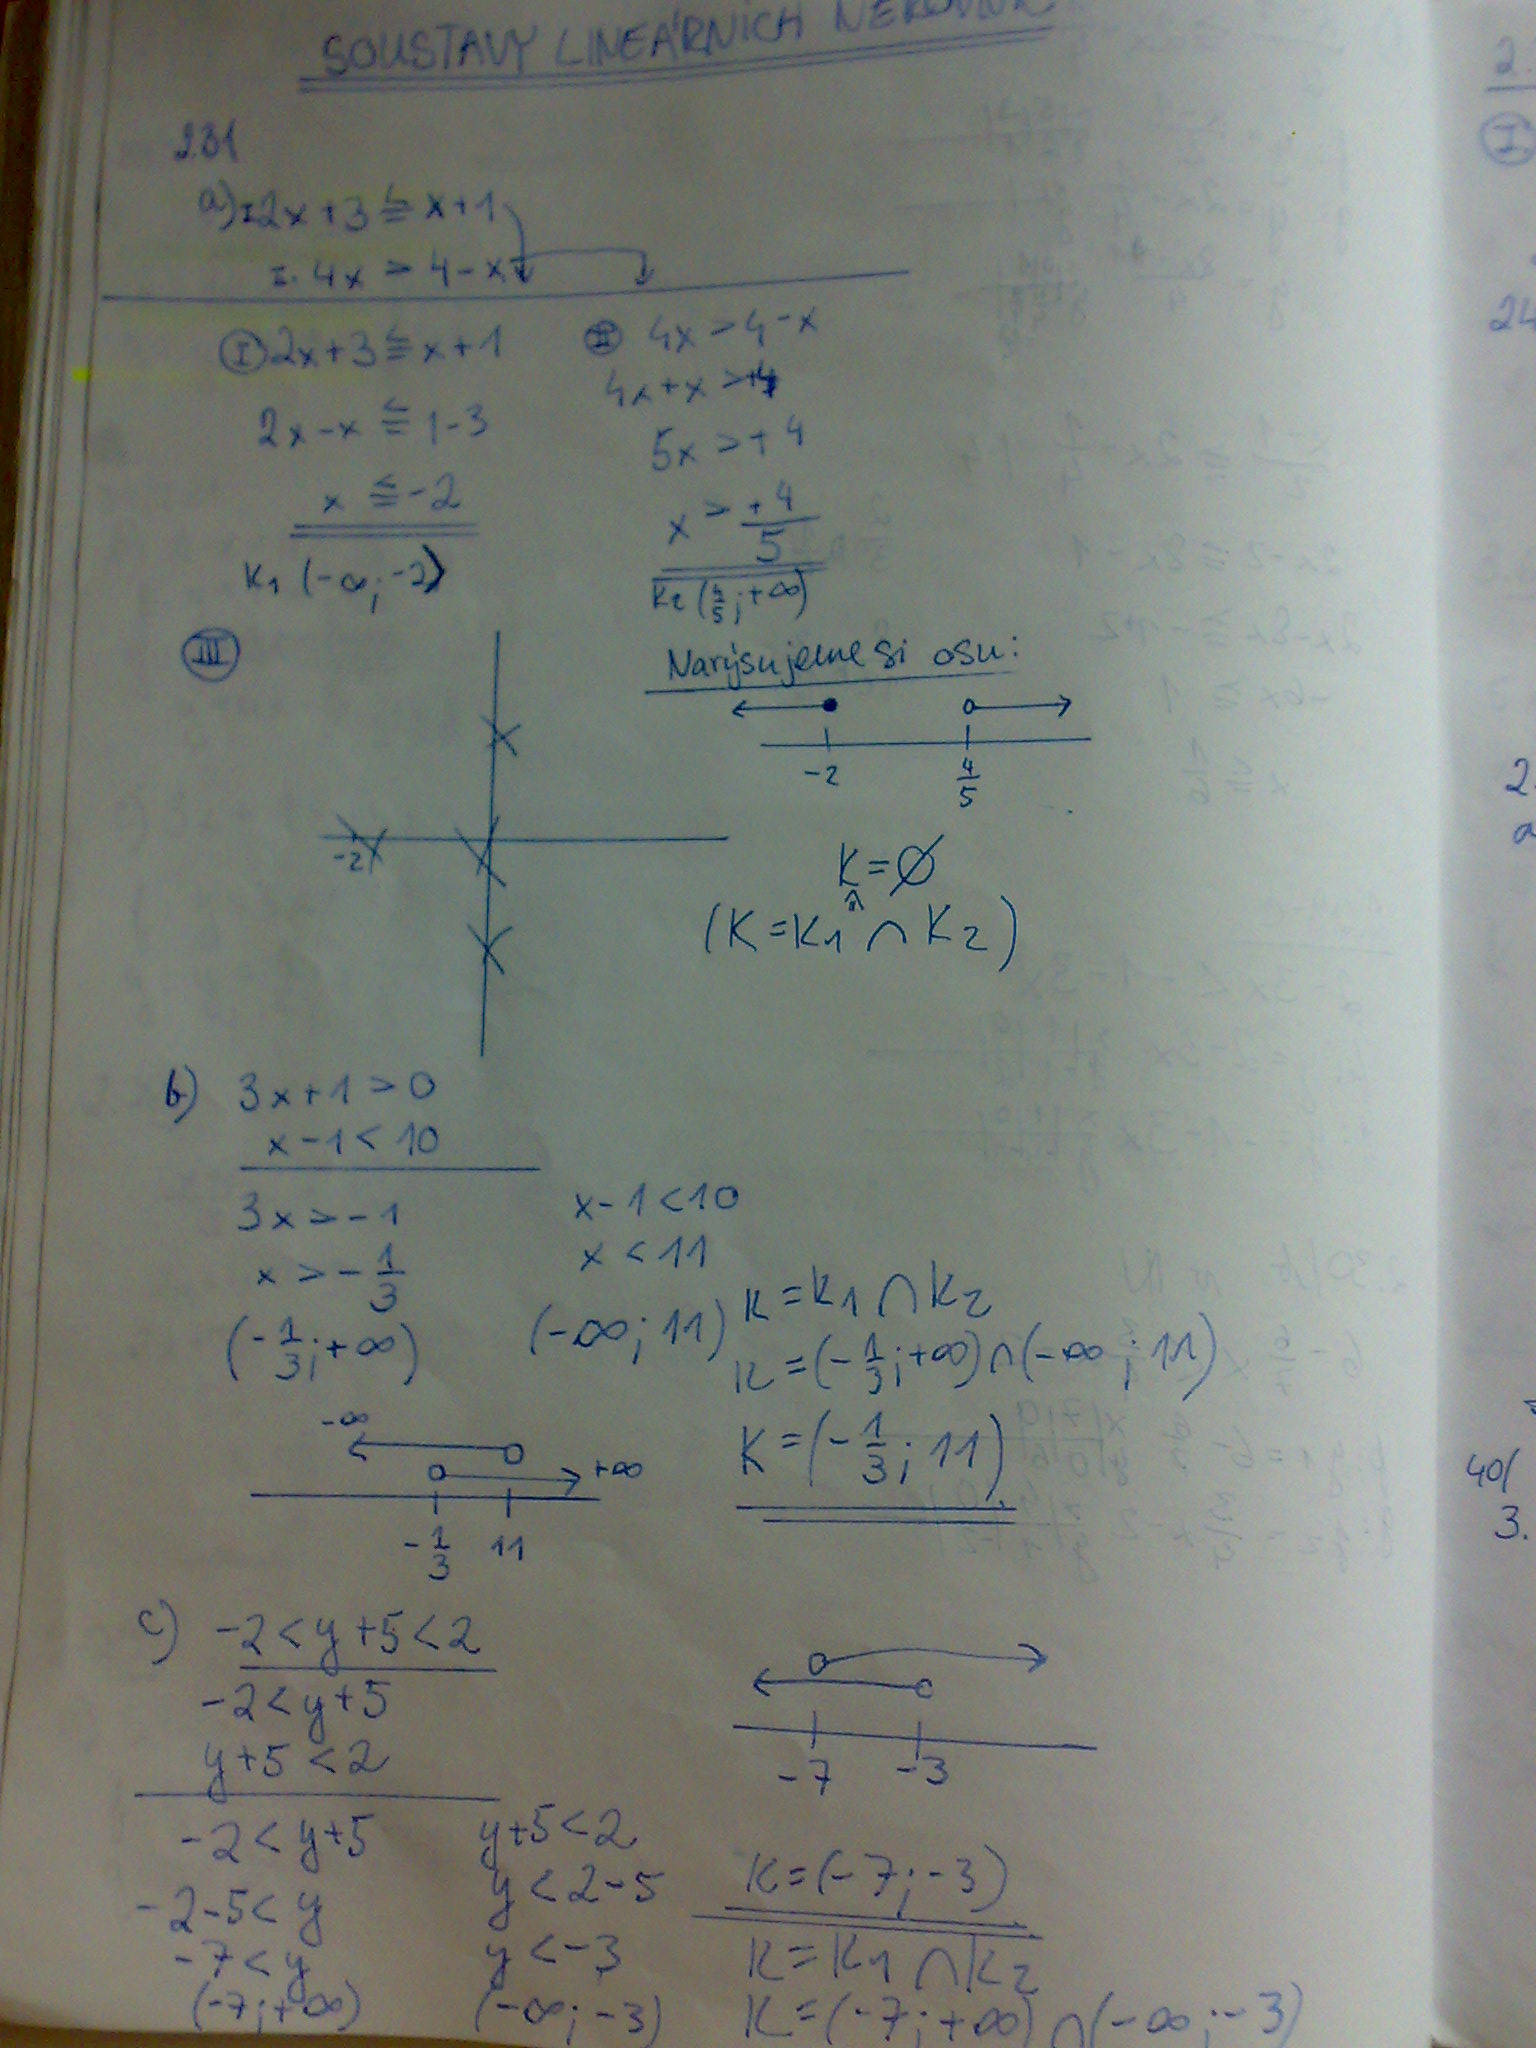 SOUSTAVY LINEÁRNÍCH
231
a) I. 2x + 3 ≦ x + 1
II. 4x > 4 - x
Ⓘ 2x + 3 ≦ x + 1
2x - x ≦ 1 - 3
x ≦ -2
K1 (-∞; -2⟩
Ⓘⓘ 4x > 4 - x
4x + x > +4
5x > +4
x > +4/5
K2 (4/5; +∞)
III
-2
Narýsujeme si osu:
-2 4/5
K = ∅
(K = K1 ∩ K2)
b) 3x + 1 > 0
x - 1 < 10
3x > -1
x > -1/3
(-1/3; +∞)
x - 1 < 10
x < 11
(-∞; 11)
K = K1 ∩ K2
K = (-1/3; +∞) ∩ (-∞; 11)
K = (-1/3; 11)
-∞
+∞
-1/3 11
c) -2 < y + 5 < 2
-2 < y + 5
y + 5 < 2
-2 < y + 5
-2 - 5 < y
-7 < y
(-7; +∞)
y + 5 < 2
y < 2 - 5
y < -3
(-∞; -3)
-7 -3
K = (-7; -3)
K = K1 ∩ K2
K = (-7; +∞) ∩ (-∞; -3)
2.
I
24
2.
a
40/
3.